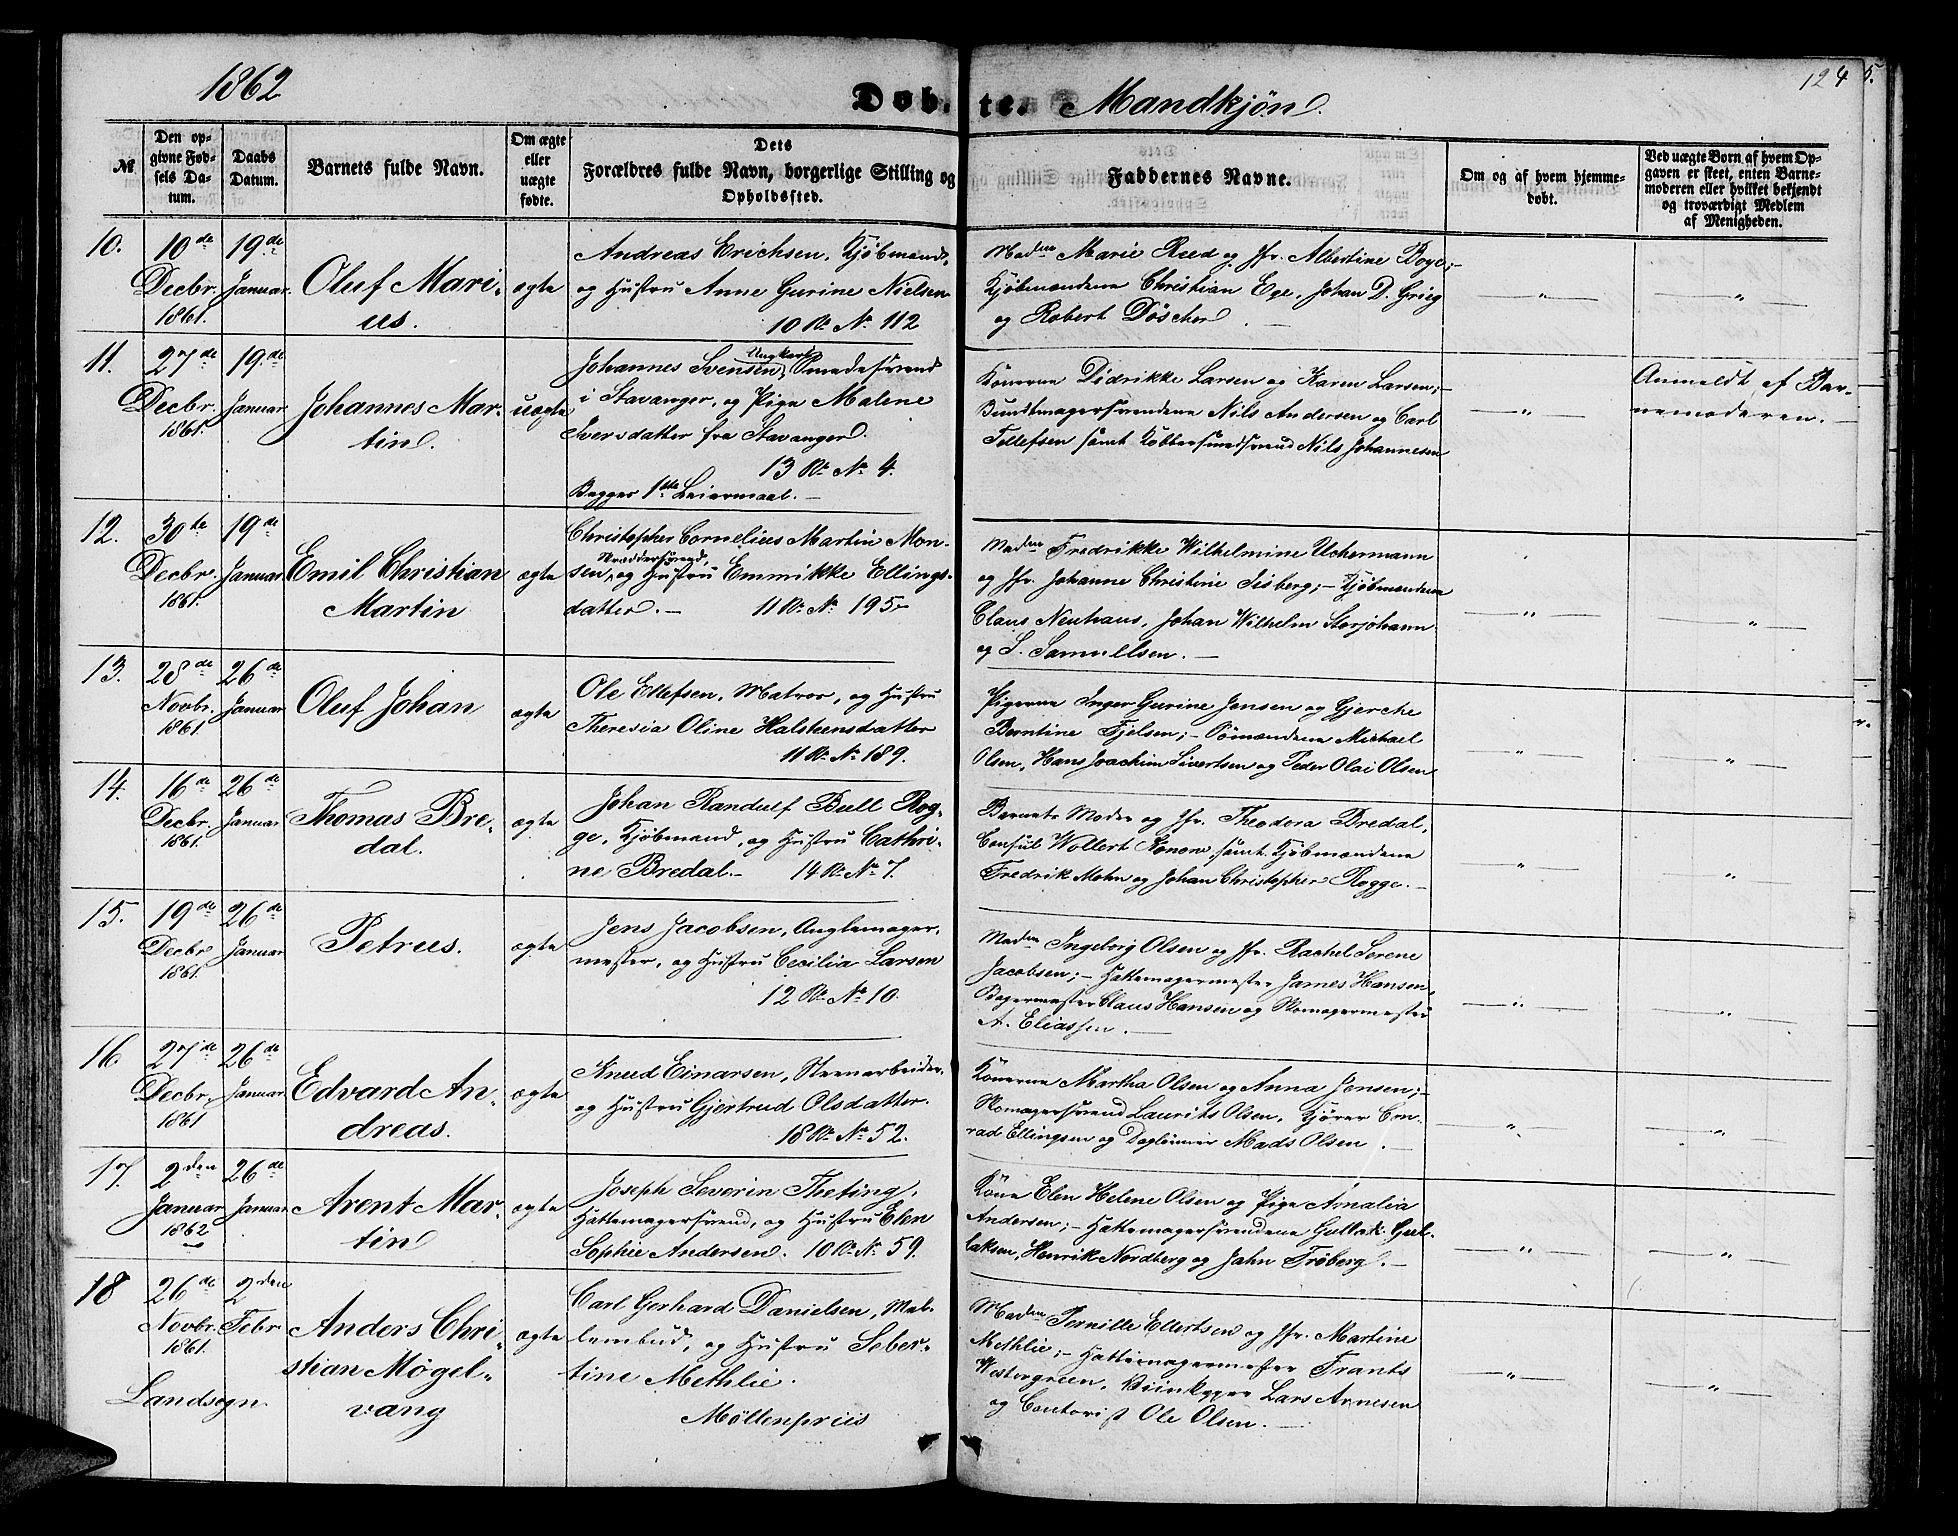 1862
Døbte. Mandkjøn.
124 5.
№
Den op-
givne Fød-
sels Da-
tum.
Daabs
Datum.
Barnets fulde Navn.
Om ægte
eller
uægte
fødte.
Dets
Forældres fulde Navn, borgerlige Stilling og
Opholdssted.
Faddernes Navne.
Om og af hvem hjemme-
døbt.
Ved uægte Børn af hvem Op-
gaven er skeet, enten Barne-
moderen eller hvilket bekjendt
og troværdigt Medlem
af Menigheden.
10.
10de
Decbr.
1861.
19de
Januar.
Oluf Mari-
us.
ægte
Andreas Erichsen, Kjøbmand,
og Hustru Anne Gurine Nielsen
10 R. No 112
Madm Marie Reed og Jfr. Albertine Boye;-
Kjøbmændene Christian Ege, Johan D. Grieg
og Robert Döscher. -
"
"
11.
27de
Decbr.
1861.
19de
Januar
Johannes Mar-
tin.
uægte
Johannes Svensen, Ungkarl, Smedesvend
i Stavanger, og Pige Malene
Iversdatter fra Stavanger.
13 R. No 4.
Begges 1ste Leiermaal. -
Konerne Didrikke Larsen og Karen Larsen;-
Buntmagersvendene Nils Andersen og Carl
Tollefsen samt Kobbersmedsvend Nils Johannesen
"
Anmeldt af Bar-
nemoderen. -
12.
30te
Decbr.
1861.
19de
Januar
Emil Christian
Martin
ægte
Christopher Cornelius Martin Mon-
sen, Skræddersvend, og Hustru Emmikke Ellings-
datter. - 11 R. No 195
Madm Fredrikke Wilhelmine Uchermann
og Jfr. Johanne Christine Isberg;- Kjøbmændene
Claus Neuhaus, Johan Wilhelm Storjohann
og S. Samuelsen. -
"
"
13.
28de
Novbr.
1861
26de
Januar
Oluf Johan
ægte
Ole Ellefsen, Matros, og Hustru
Theresia Oline Halsteensdatter
11 R. No 189.
Pigerne Inger Gurine Jensen og Gjerche
Berntine Fjelsen;- Sømændene Michael
Olsen, Hans Joachim Sivertsen og Peder Olai Olsen
"
"
14.
16de
Decbr.
1861.
26de
Januar
Thomas Bre-
dal.
ægte
Johan Randulf Bull Rog-
ge, Kjøbmand, og Hustru Cathri-
ne Bredal. - 14 R. No 7.
Barnets Moder og Jfr. Theodora Bredal,
Consul Wollert Konow, samt Kjøbmændene
Fredrik Mohn og Johan Christopher Rogge. -
"
"
15.
19de
Decbr
1861.
26de
Januar
Petrus.
ægte
Jens Jacobsen, Anglemager-
mester, og Hustru Cecilia Larsen
12 R. No 10.
Madm Ingeborg Olsen og Jfr. Rachel Serene
Jacobsen;- Hattemagermester James Hansen,
Bagermester Claus Hansen og Skomagermester
A. Eliassen. -
"
"
16.
27de
Decbr.
1861
26de
Januar
Edvard An-
dreas.
ægte
Knud Einarsen, Steenarbeider,
og Hustru Gjertrud Olsdatter.
18 R. No 52.
Konerne Martha Olsen og Anna Jensen;-
Skomagersvend Laurits Olsen, Kjører Con-
rad Ellingsen og Dagleier Mads Olsen. -
"
"
17.
2den
Januar
1862
26de
Januar
Arent Mar-
tin
ægte
Joseph Severin Theting,
Hattemagersvend, og Hustru Elen
Sophie Andersen. 10 R. No 59.
Kone Elen Helene Olsen og Pige Amalia
Andersen;- Hattemagersvendene Gullak Gul-
laksen, Henrik Nordberg og Jahn Frøberg. -
"
"
18
26de
Novbr.
1861.
2den
Febr.
Landsogn.
Anders Chri-
stian Møgel-
vang
ægte
Carl Gerhard Danielsen, Mel-
lembud, og Hustru Seber-
tine Methlie.
Möllenpriis
Madm Pernille Ellertsen og Jfr. Martine
Methlie;- Hattemagermester Frants
Westergreen, Viinkyper Lars Arnesen
og Contorist Ole Olsen. -
"
"